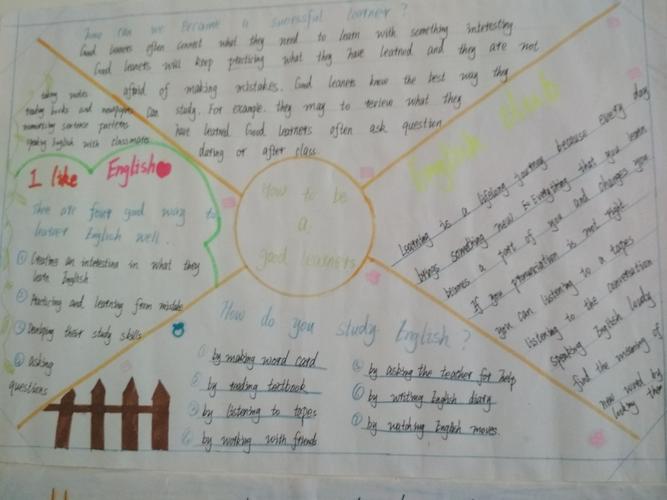 How can we became a successful learner ?
Good learners often connect what they need to learn with something interesting
Good leanets will keep practicing what they have learned and they are not
afraid of making mistakes. Good leanets know the best way they
can study. For example. they may to review what they
have learned. Good learners often ask question
during or after class
taking notes
reading books and newspapers
memorizing sentence patterns
speaking English with classmates
I like English
There are four good way to
learner English well.
① Creating an interesting in what they
learn English
② Practuring and learning from mistake
③ Developing their study skills
④ asking
questions
How to be
a
good learners
English club
Learning is a lifelong journey because every day
brings something new Everything that you learn
becomes a part of you and changes you
If you pronunciation is not right
you can listening to a tapes
listening to the conversation
speaking English loudly
find the meaning of
new word by
looking them
How do you study English ?
① by making word card
② by reading textbook
③ by listening to tapes
④ by working with friends
by asking the teacher for help
⑥ by writing English diary
⑦ by watching English moves